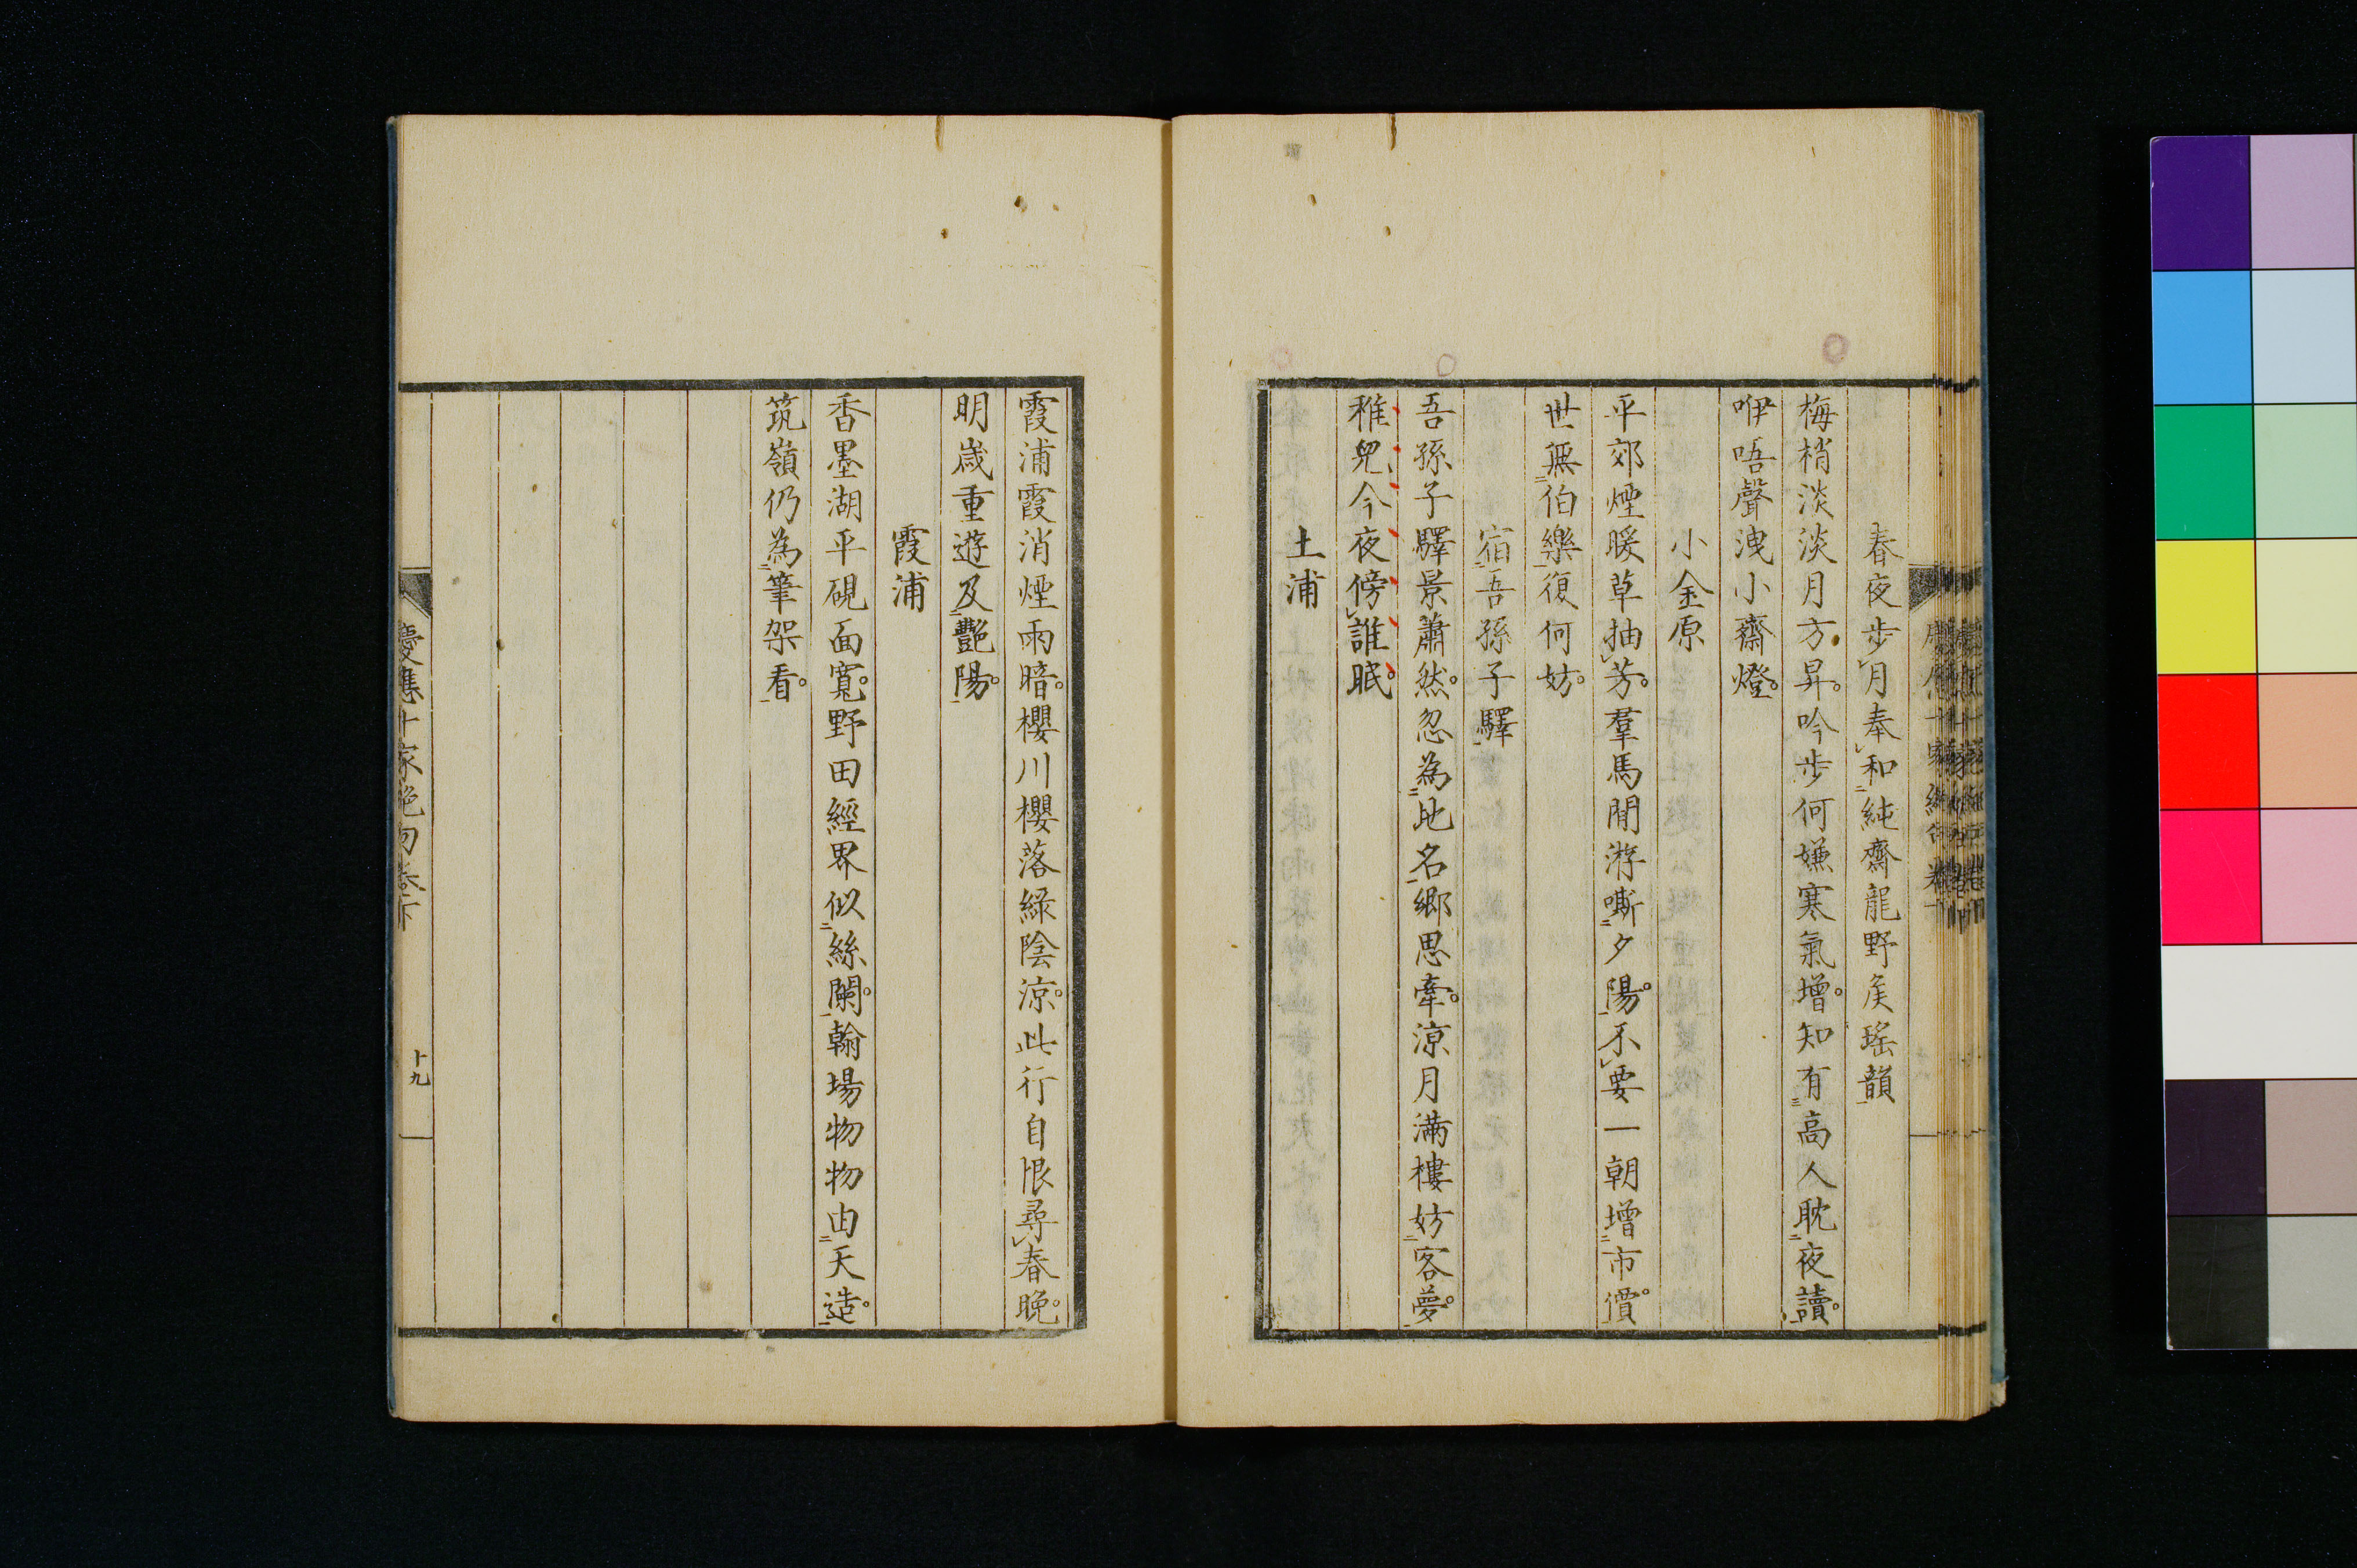 春夜步月奉和純齋龍野矦瑤韻
梅梢淡淡月方昇。吟步何嫌寒氣增。知有高人耽夜讀。
咿唔聲洩小齋燈。
小金原
平郊煙暖草抽芳。羣馬閒游嘶夕陽。不要一朝增市價。
世無伯樂復何妨。
宿吾孫子驛
吾孫子驛景蕭然。忽為此名鄉思牽。涼月滿樓妨客夢。
稚兒今夜傍誰眠。
土浦
霞浦霞消煙雨暗。櫻川櫻落綠陰涼。此行自恨尋春晚。
明歲重遊及艷陽。
霞浦
香墨湖平硯面寬。野田經界似絲闌。翰場物物由天造。
筑嶺仍為筆架看。
慶應十家絕句卷下
十九